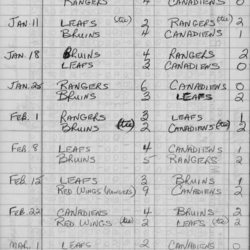 RANGERS 4 CANADIENS 0
JAN. 11 LEAFS (tie) 2 RANGERS (tie) 2
BRUINS 4 CANADIENS 1
JAN. 18 BRUINS 4 RANGERS 2
LEAFS 2 CANADIENS 0
JAN. 25 RANGERS 6 CANADIENS 0
BRUINS 3 LEAFS 2
FEB. 1 RANGERS 3 LEAFS 1
BRUINS (tie) 2 CANADIENS (tie) 2
FEB. 8 LEAFS 4 CANADIENS 1
BRUINS 5 RANGERS 2
FEB. 15 LEAFS 3 BRUINS 1
RED WINGS 9 CANADIENS 2
FEB. 22 CANADIENS 4 BRUINS 2
RED WINGS (tie) 2 LEAFS (tie) 2
MAR. 1 LEAFS 2 CANADIENS